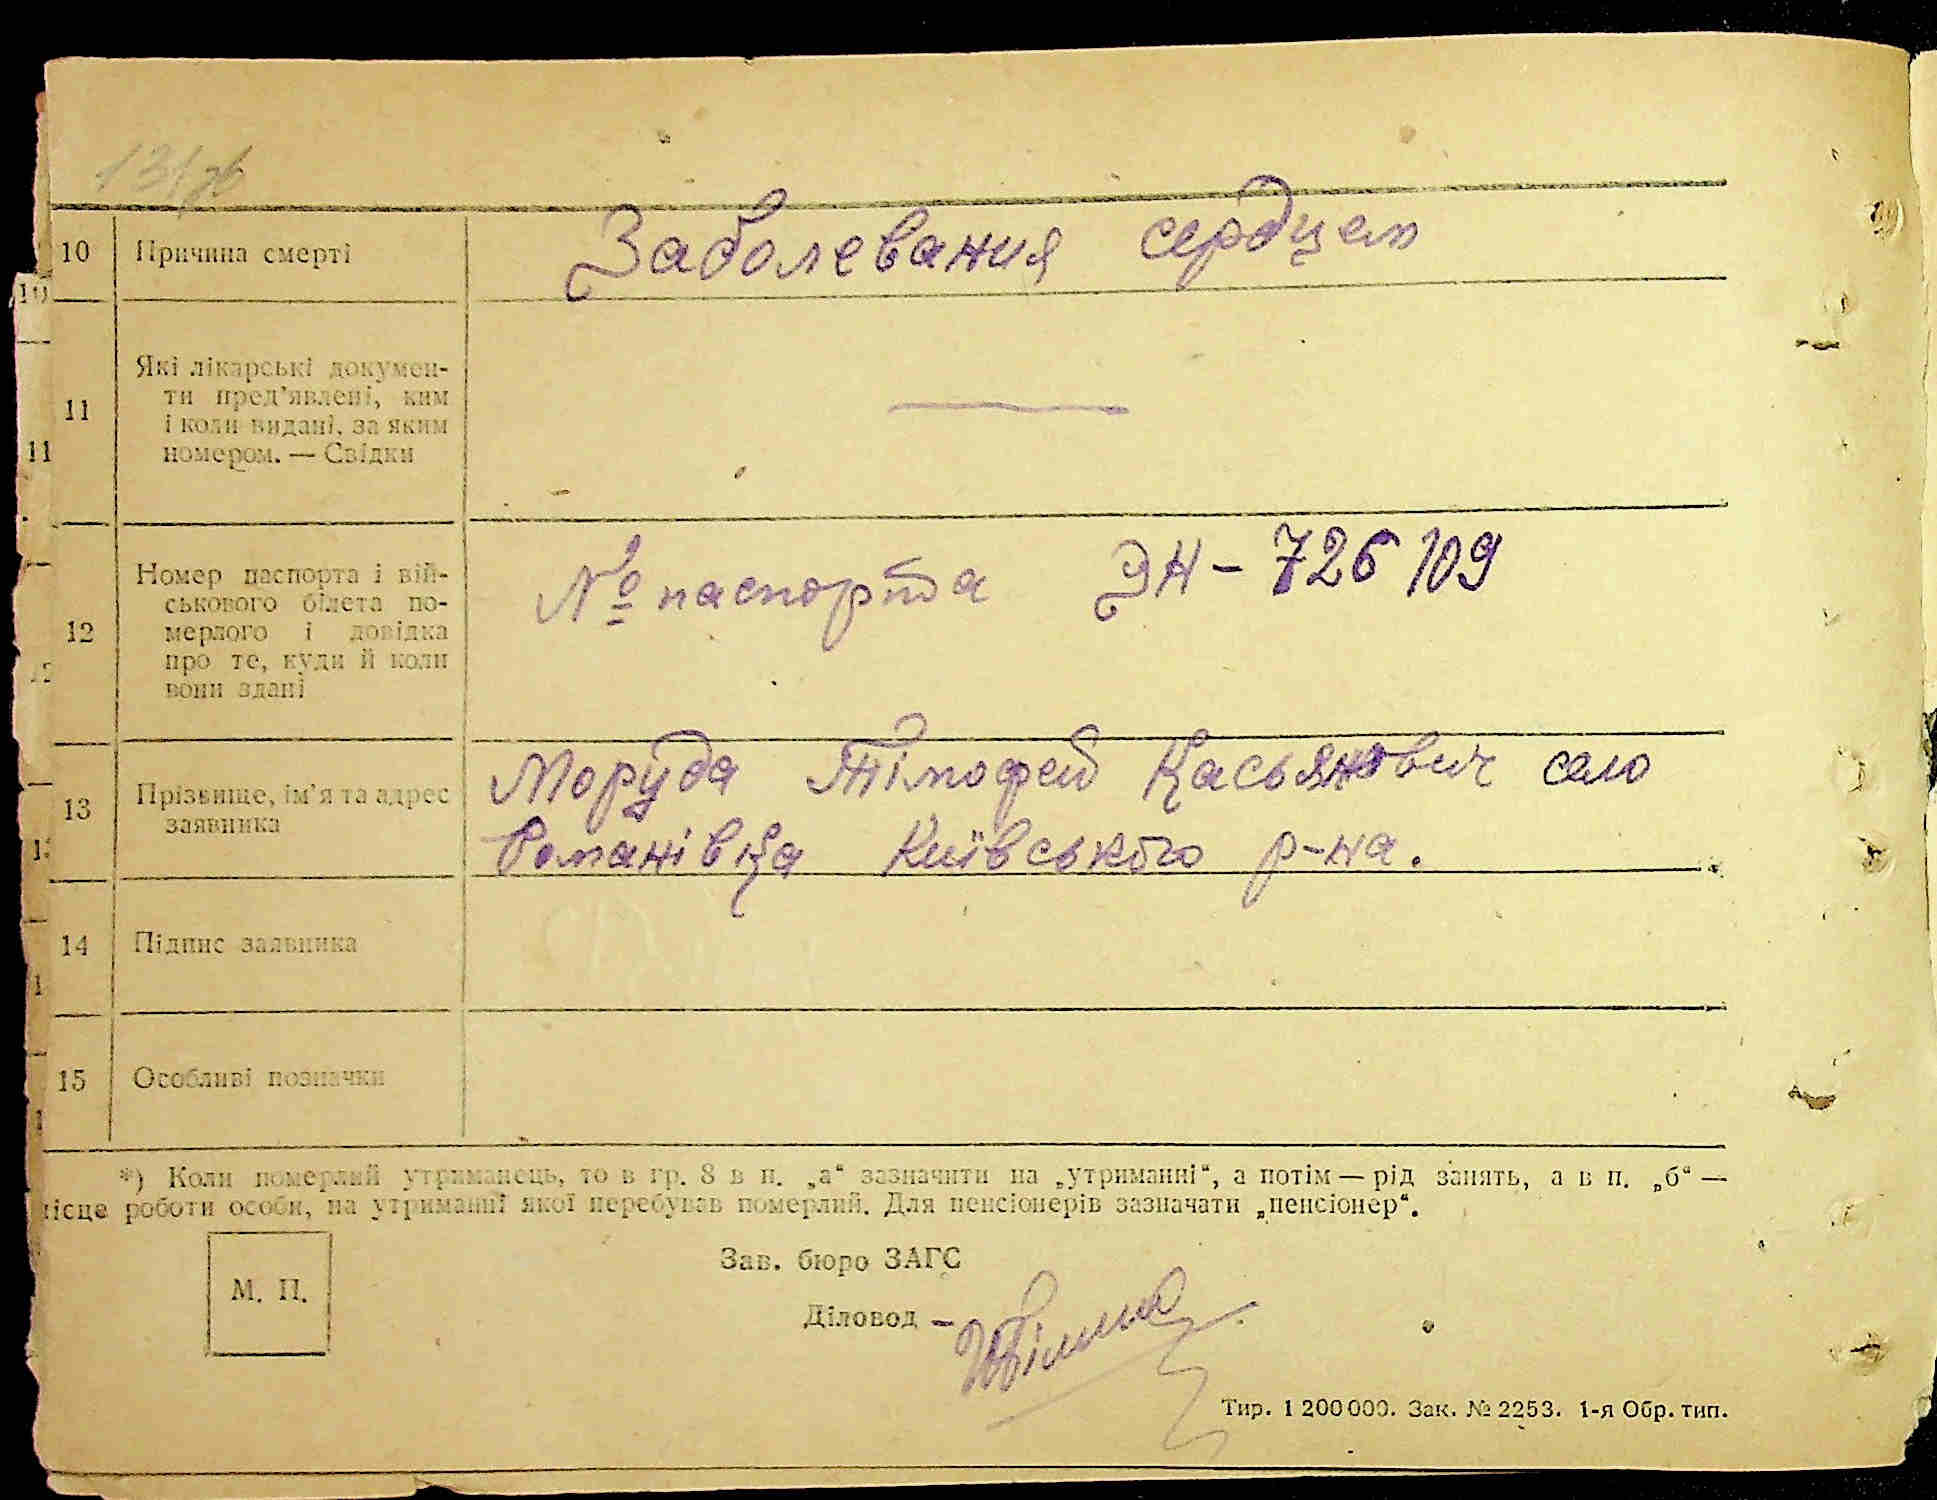 131
10 Причина смерті Заболевания сердцем
11 Які лікарські докумен-
ти пред’явлені, ким
і коли видані, за яким
номером. — Свідки —
12 Номер паспорта і вій-
ськового білета по-
мерлого і довідка
про те, куди й коли
вони здані
№ паспорта ЭН - 726109
13 Прізвище, ім’я та адрес
заявника
Моруда Тімофей Касьянович село
Романівка Київського р-на.
14 Підпис заявника
15 Особливі позначки
*) Коли померлий утриманець, то в гр. 8 в п. „а“ зазначити на „утриманні“, а потім — рід занять, а в п. „б“ —
місце роботи особи, на утриманні якої перебував померлий. Для пенсіонерів зазначати „пенсіонер“.
М. П.
Зав. бюро ЗАГС
Діловод —
Тир. 1 200 000. Зак. № 2253. 1-я Обр. тип.